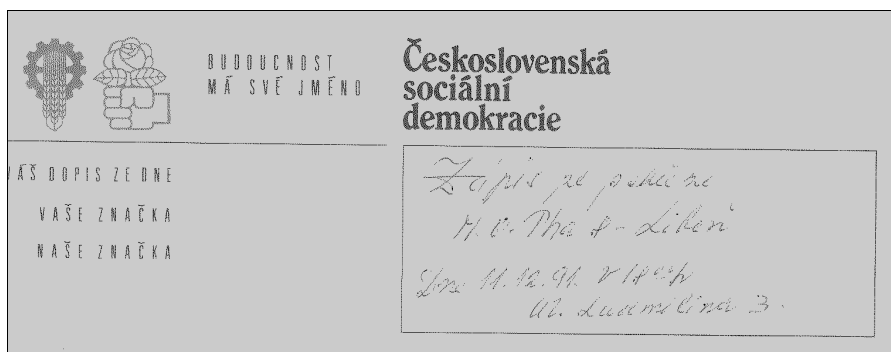 BUDOUCNOST
MÁ SVÉ JMÉNO
Československá
sociální
demokracie
VÁŠ DOPIS ZE DNE
VAŠE ZNAČKA
NAŠE ZNAČKA
Zápis ze schůze
M.O. Pha 8 - Libeň
Dne 11.12.91. v 18
Ul. Ludmilina 3.